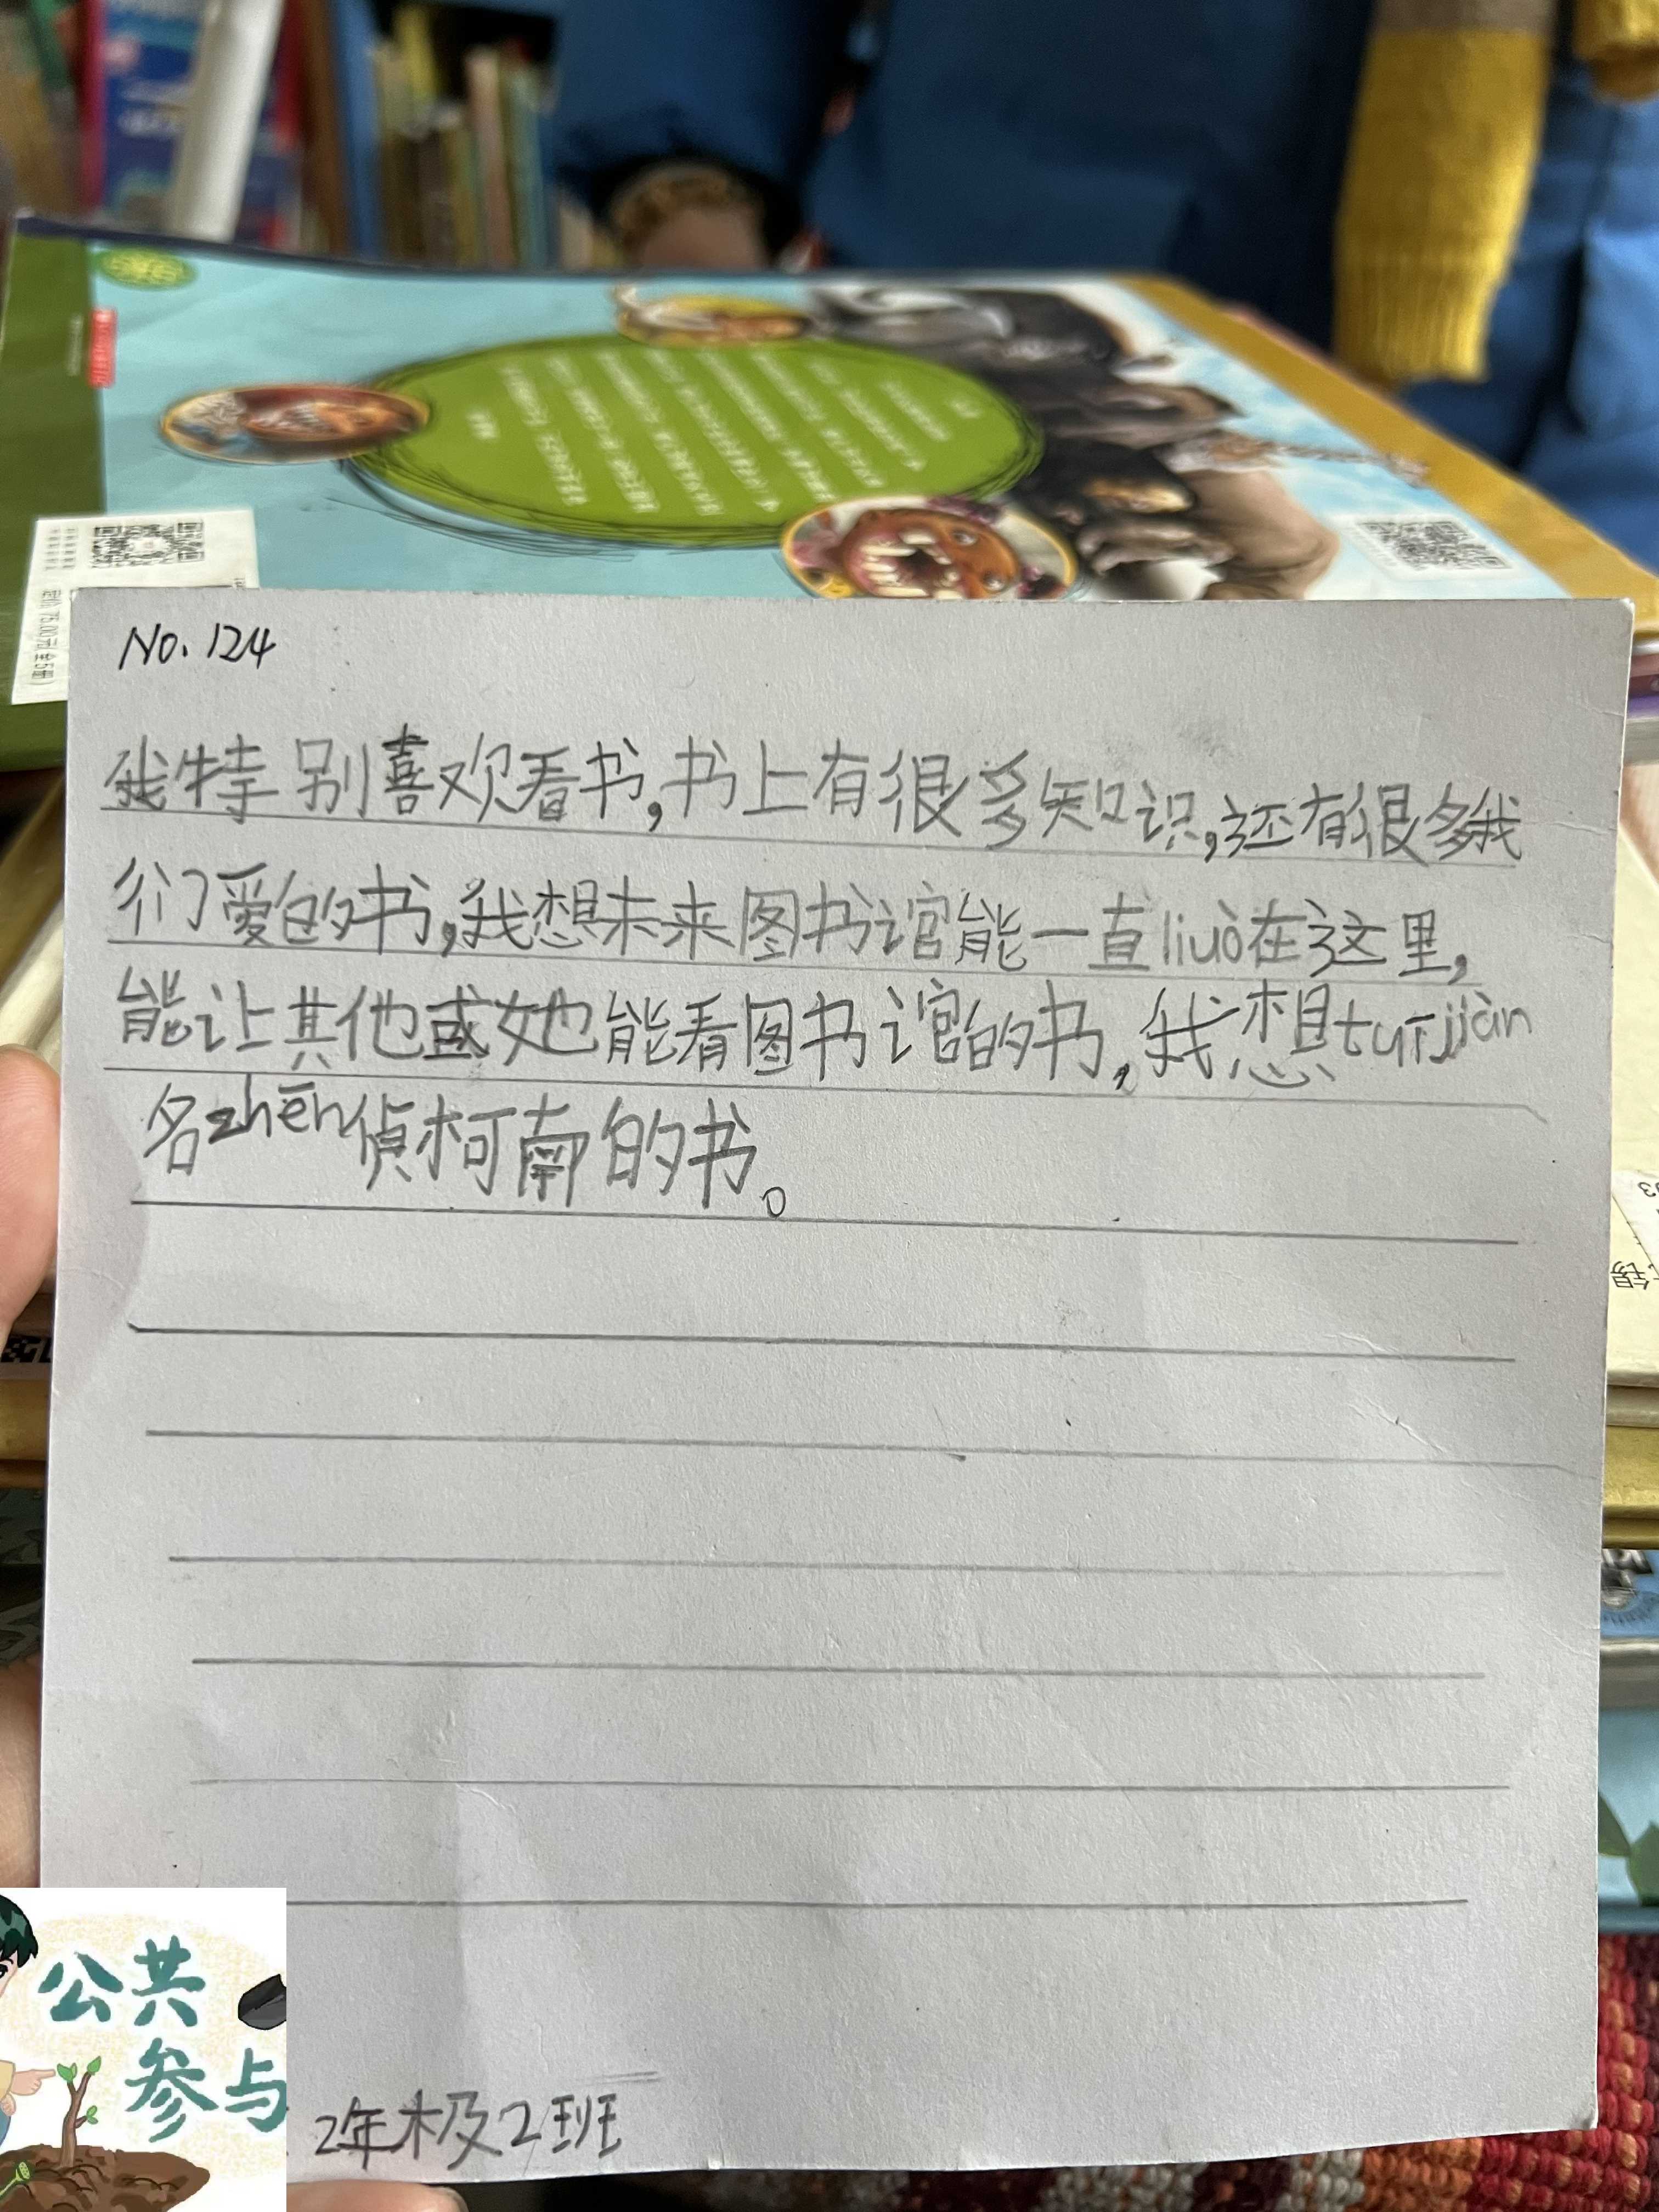 No.124
我特别喜欢看书,书上有很多知识,还有很多我
们爱的书,我想未来图书馆能一直liuò在这里,
能让其他或她能看图书馆的书,我想tuījiàn
名zhēn侦柯南的书。
2年极2班
公共
参与
定价75.00元(全5册)